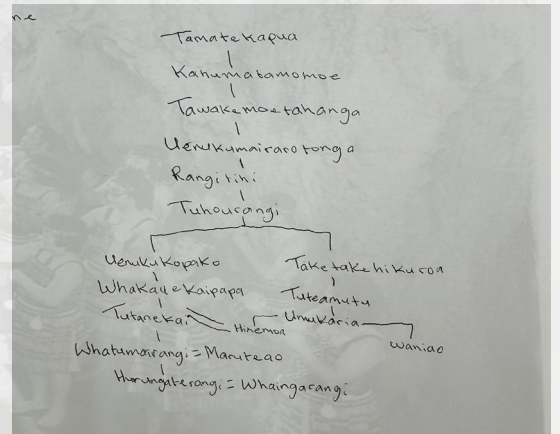 ne
Tamatekapua
Kahumatamomoe
Tawakemoetahanga
Uenukumairarotonga
Rangitihi
Tuhourangi
Uenukukopako Taketakehikuroa
Whakauekaipapa Tuteamutu
Tutanekai Hinemoa Umukaria Waniao
Whatumairangi = Maruteao
Hurungaterangi = Whaingarangi